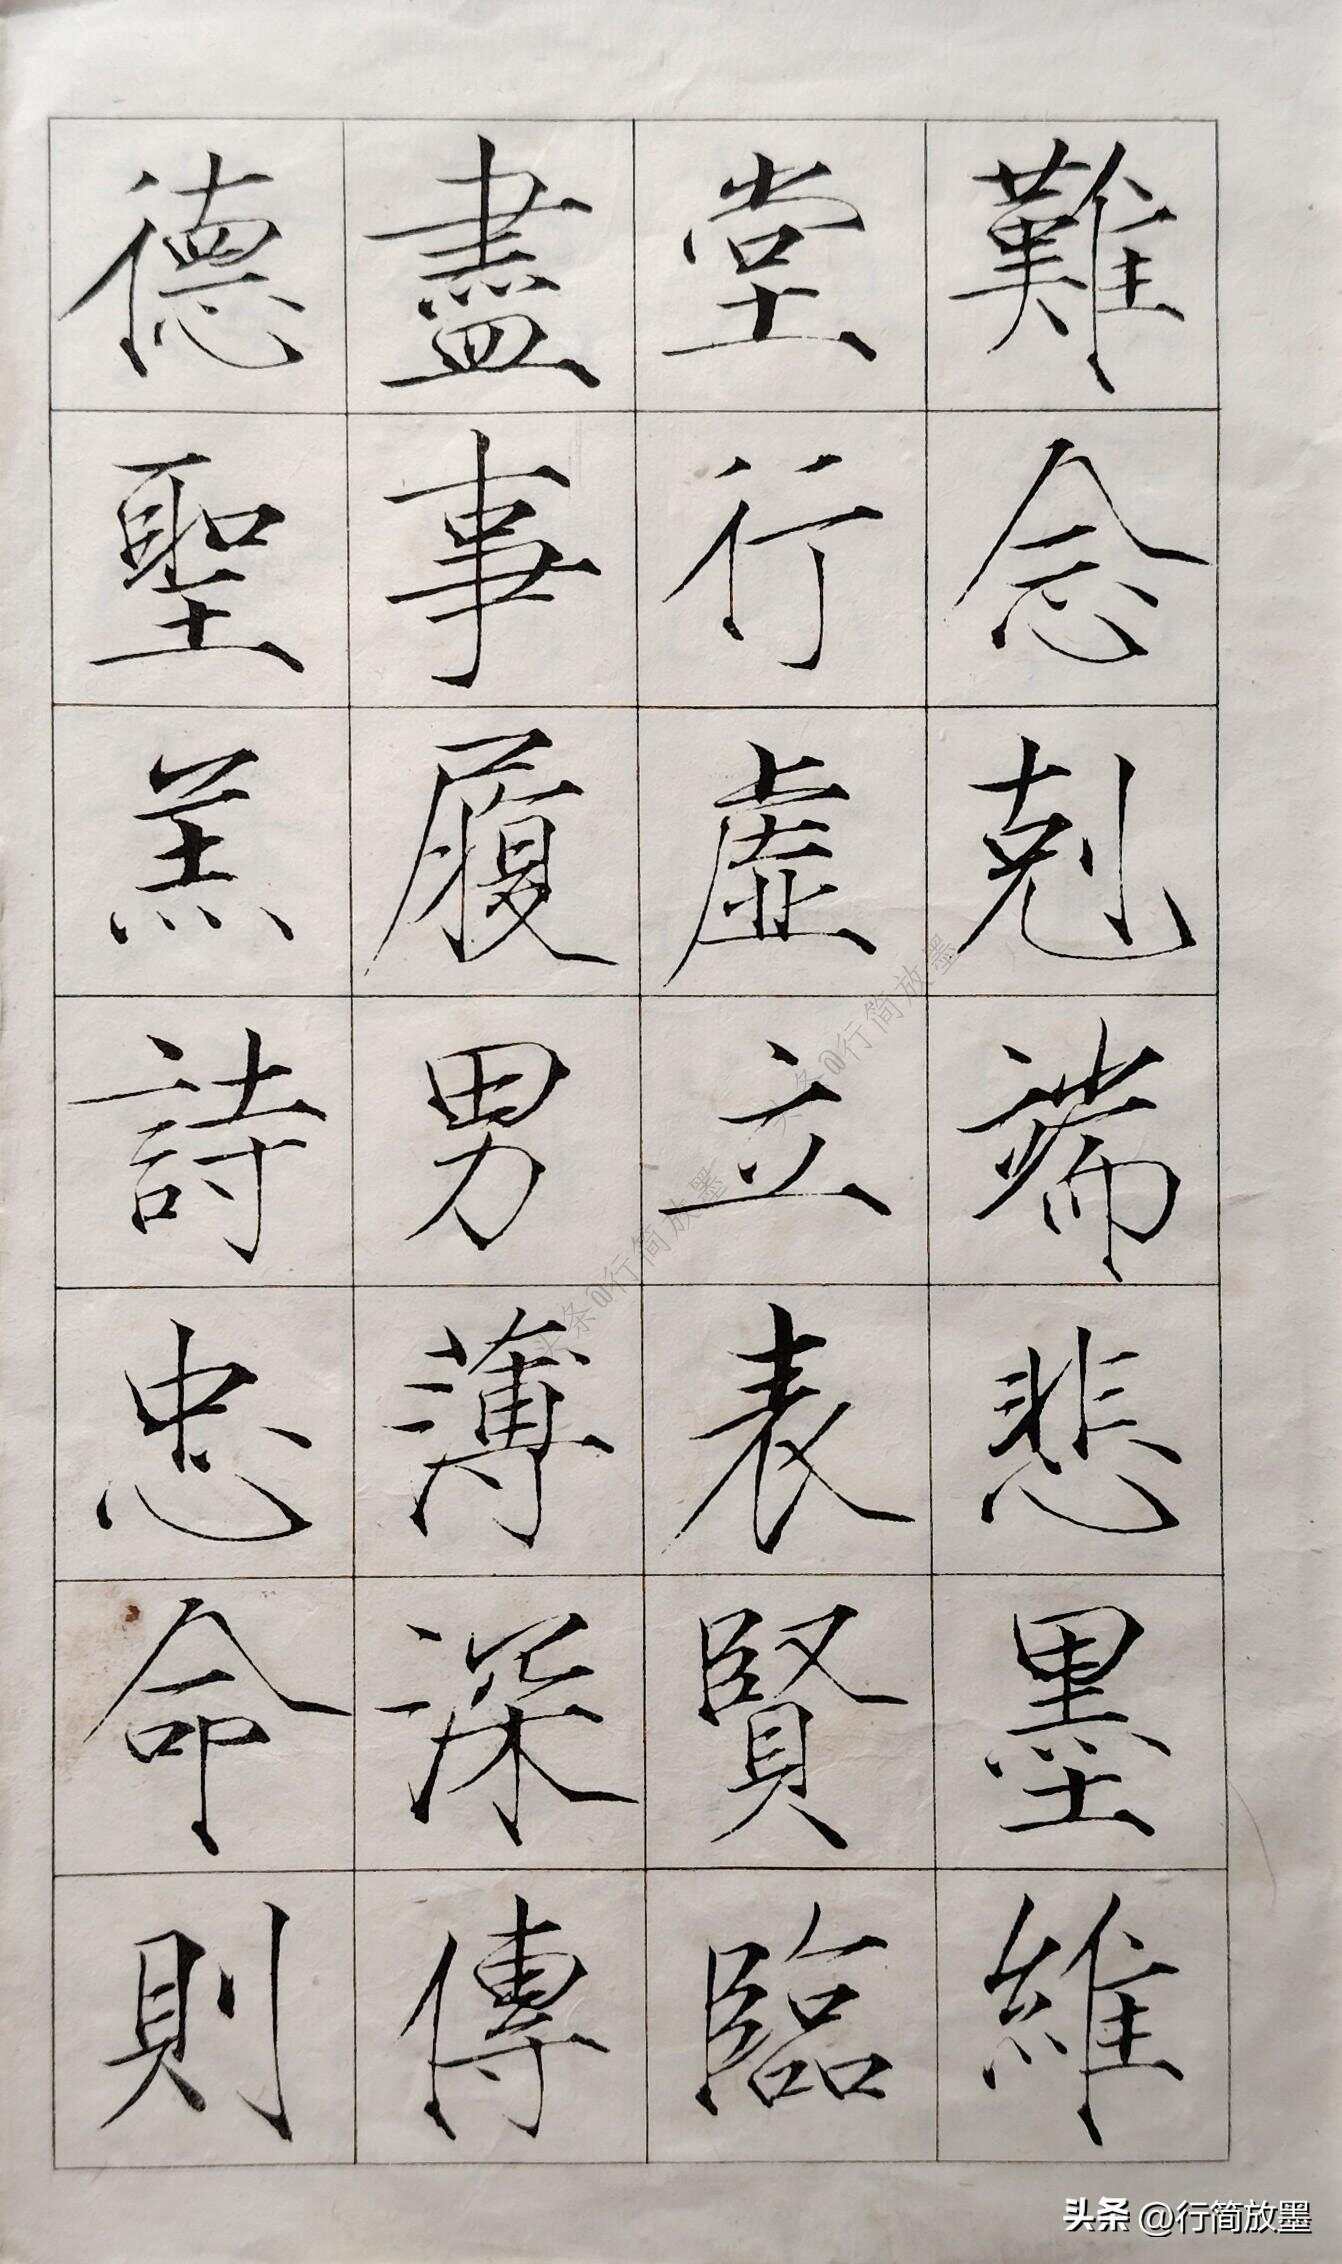 難念剋端悲墨維
堂行虛立表賢臨
盡事履男薄深傳
德聖羔詩忠命則
头条@行简放墨
头条@行简放墨
头条 @行简放墨